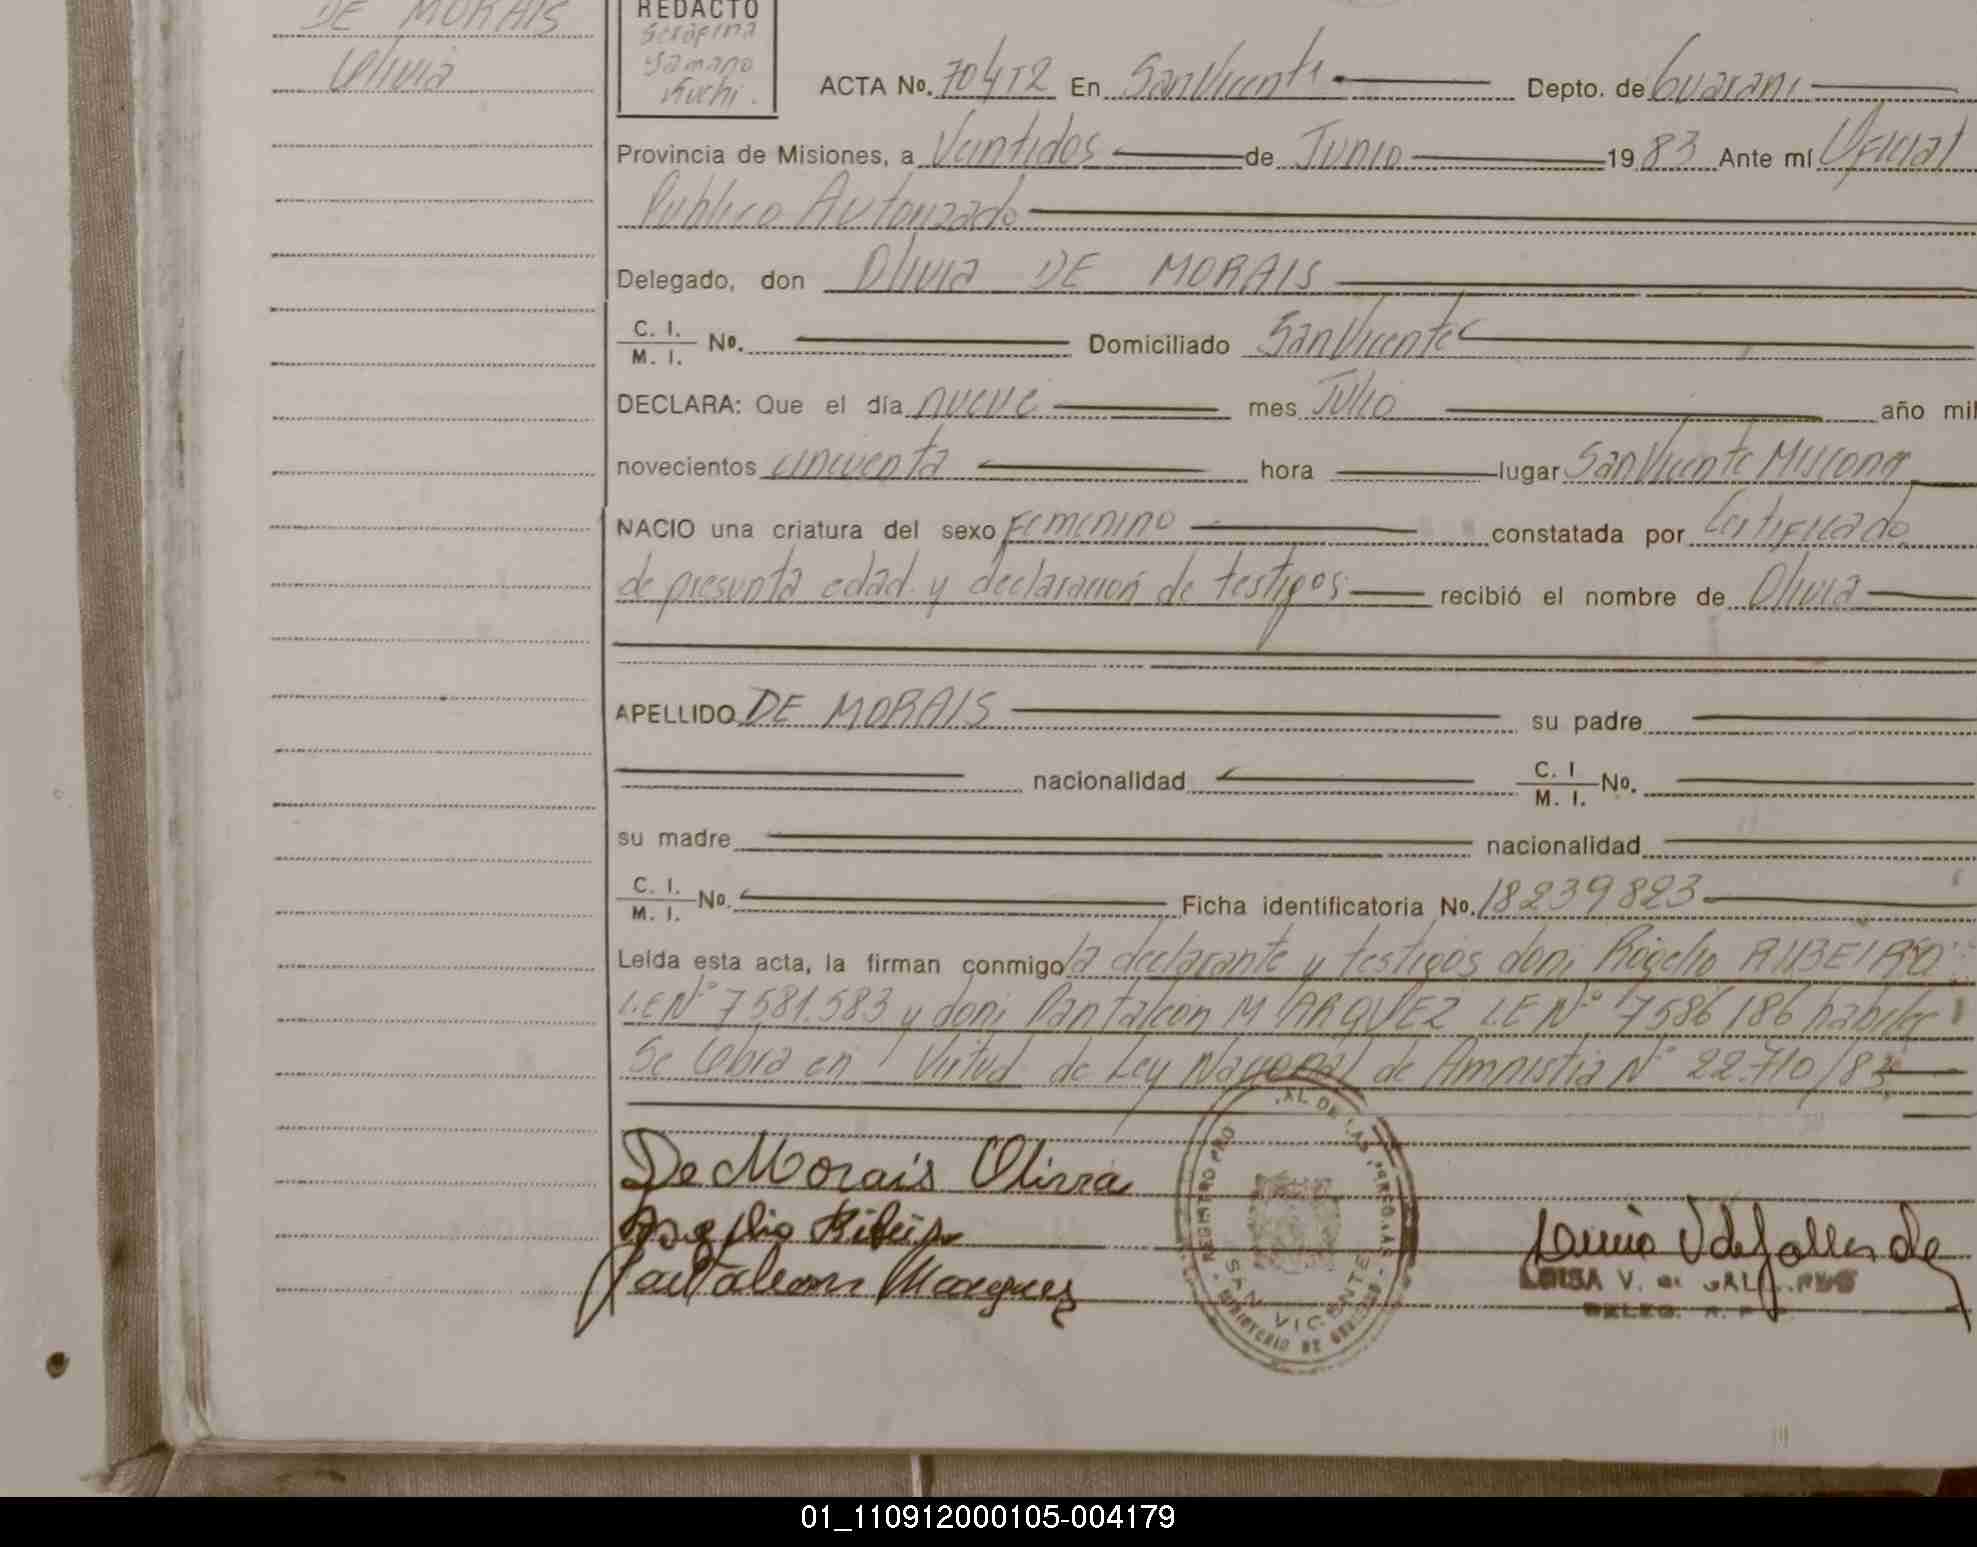 DE MORAIS
Olivia
REDACTO
Serafina
Samano
Kuchi.
ACTA No. 70412 En San Vicente Depto. de Guarani
Provincia de Misiones, a Veintidos de Junio 1983 Ante mí Oficial
Publico Autorizado
Delegado, don Olivia DE MORAIS
C. I.
M. I. No. Domiciliado San Vicente
DECLARA: Que el día nueve mes Julio año mil
novecientos cincuenta hora lugar San Vicente Misiones
NACIO una criatura del sexo Femenino constatada por Certificado
de presunta edad y declaracion de testigos recibió el nombre de Olivia
APELLIDO DE MORAIS su padre
nacionalidad C. I
M. I. No.
su madre nacionalidad
C. I.
M. I. No. Ficha identificatoria No. 18239823
Leida esta acta, la firman conmigo la declarante y testigos don: Rogelio RIBEIRO
L.E Nº 7581.583 y don: Pantaleon MARQUEZ L.E Nº 7586186 habiles
Se labra en Virtud de Ley Nacional de Amnistia Nº 22.710/83
De Morais Olivia
Rogelio Ribeiro
Pantaleon Marquez
REGISTRO PRO AL DE LAS PERSONAS
SAN VICENTE
MINISTERIO DE GOBIERNO
LUISA V. de GALL
DELEG. R. P
01_110912000105-004179